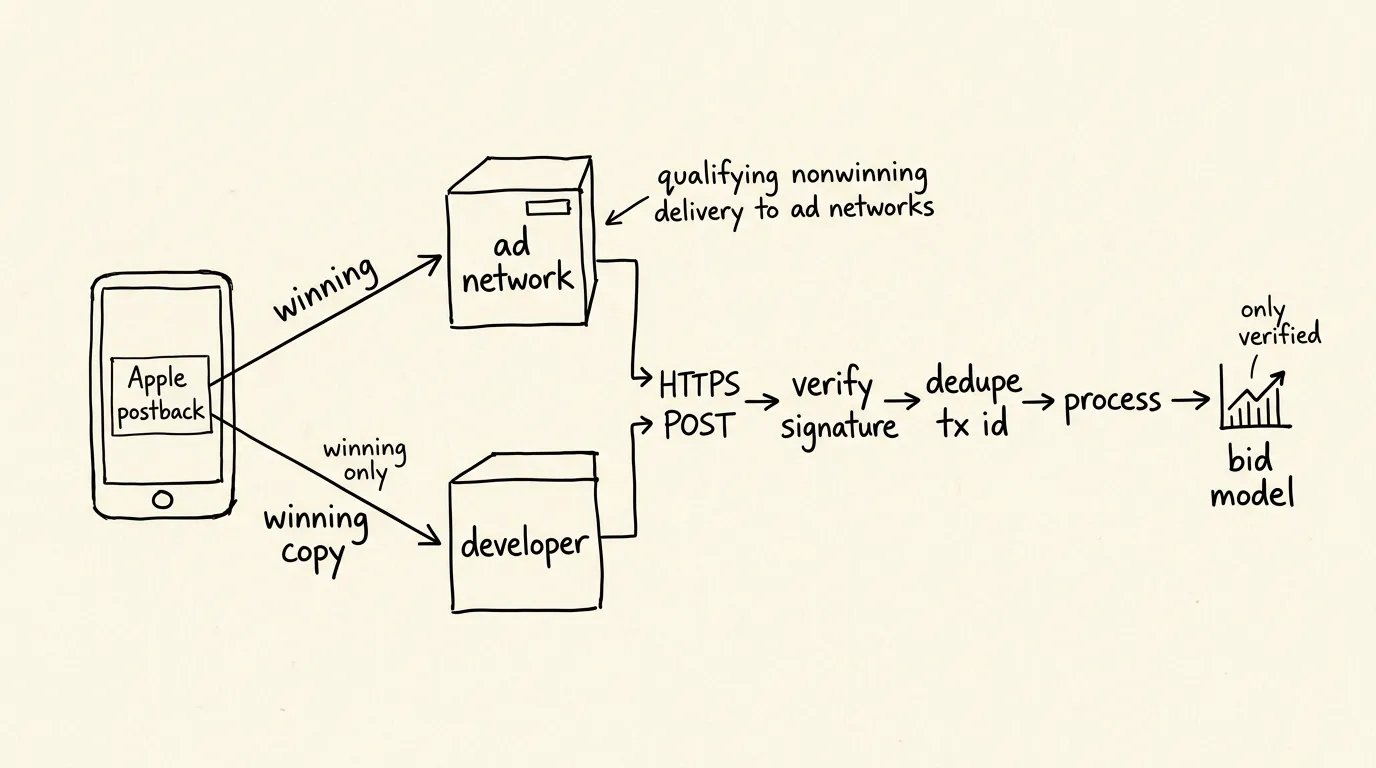 Apple
postback
winning
winning
only
winning
copy
ad
network
qualifying nonwinning
delivery to ad networks
developer
HTTPS
POST
verify
signature
dedupe
tx id
process
only
verified
bid
model